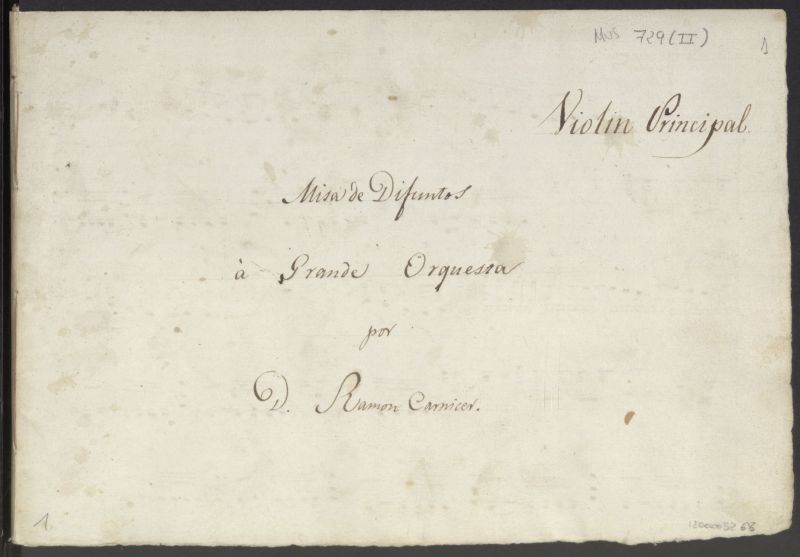 MUS 729 (II)
1
Violin Principal.
Misa de Difuntos
à Grande Orquessa
por
D. Ramon Carnicer.
1